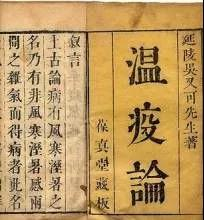 延陵吳又可先生著
温疫論
葆真堂藏板
敘言
上古論病有風寒溼暑之
名乃有非風寒溼暑感兩
間之雜氣而得病者此名